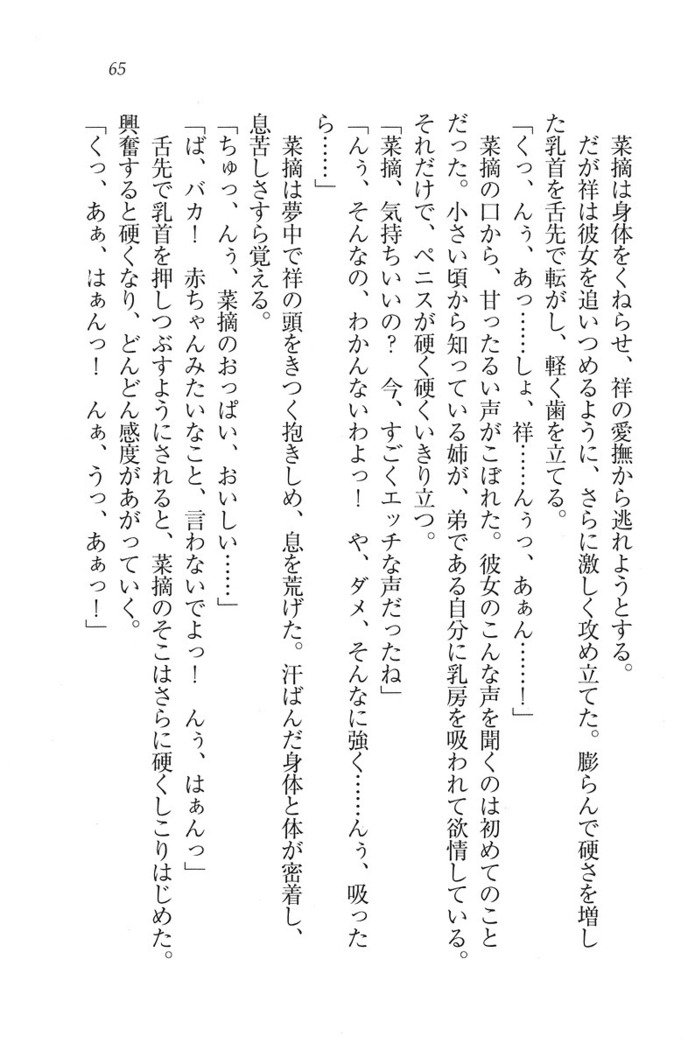 65
菜摘は身体をくねらせ、祥の愛撫から逃れようとする。
だが祥は彼女を追いつめるように、さらに激しく攻め立てた。膨らんで硬さを増し
た乳首を舌先で転がし、軽く歯を立てる。
「くっ、んぅ、あっ……しょ、祥……んぅっ、あぁん……！」
菜摘の口から、甘ったるい声がこぼれた。彼女のこんな声を聞くのは初めてのこと
だった。小さい頃から知っている姉が、弟である自分に乳房を吸われて欲情している。
それだけで、ペニスが硬く硬くいきり立つ。
「菜摘、気持ちいいの？　今、すごくエッチな声だったね」
「んぅ、そんなの、わかんないわよっ！　や、ダメ、そんなに強く……んぅ、吸った
ら……」
菜摘は夢中で祥の頭をきつく抱きしめ、息を荒げた。汗ばんだ身体と体が密着し、
息苦しさすら覚える。
「ちゅっ、んぅ、菜摘のおっぱい、おいしい……」
「ば、バカ！　赤ちゃんみたいなこと、言わないでよっ！　んぅ、はぁんっ」
舌先で乳首を押しつぶすようにされると、菜摘のそこはさらに硬くしこりはじめた。
興奮すると硬くなり、どんどん感度があがっていく。
「くっ、あぁ、はぁんっ！　んぁ、うっ、あぁっ！」